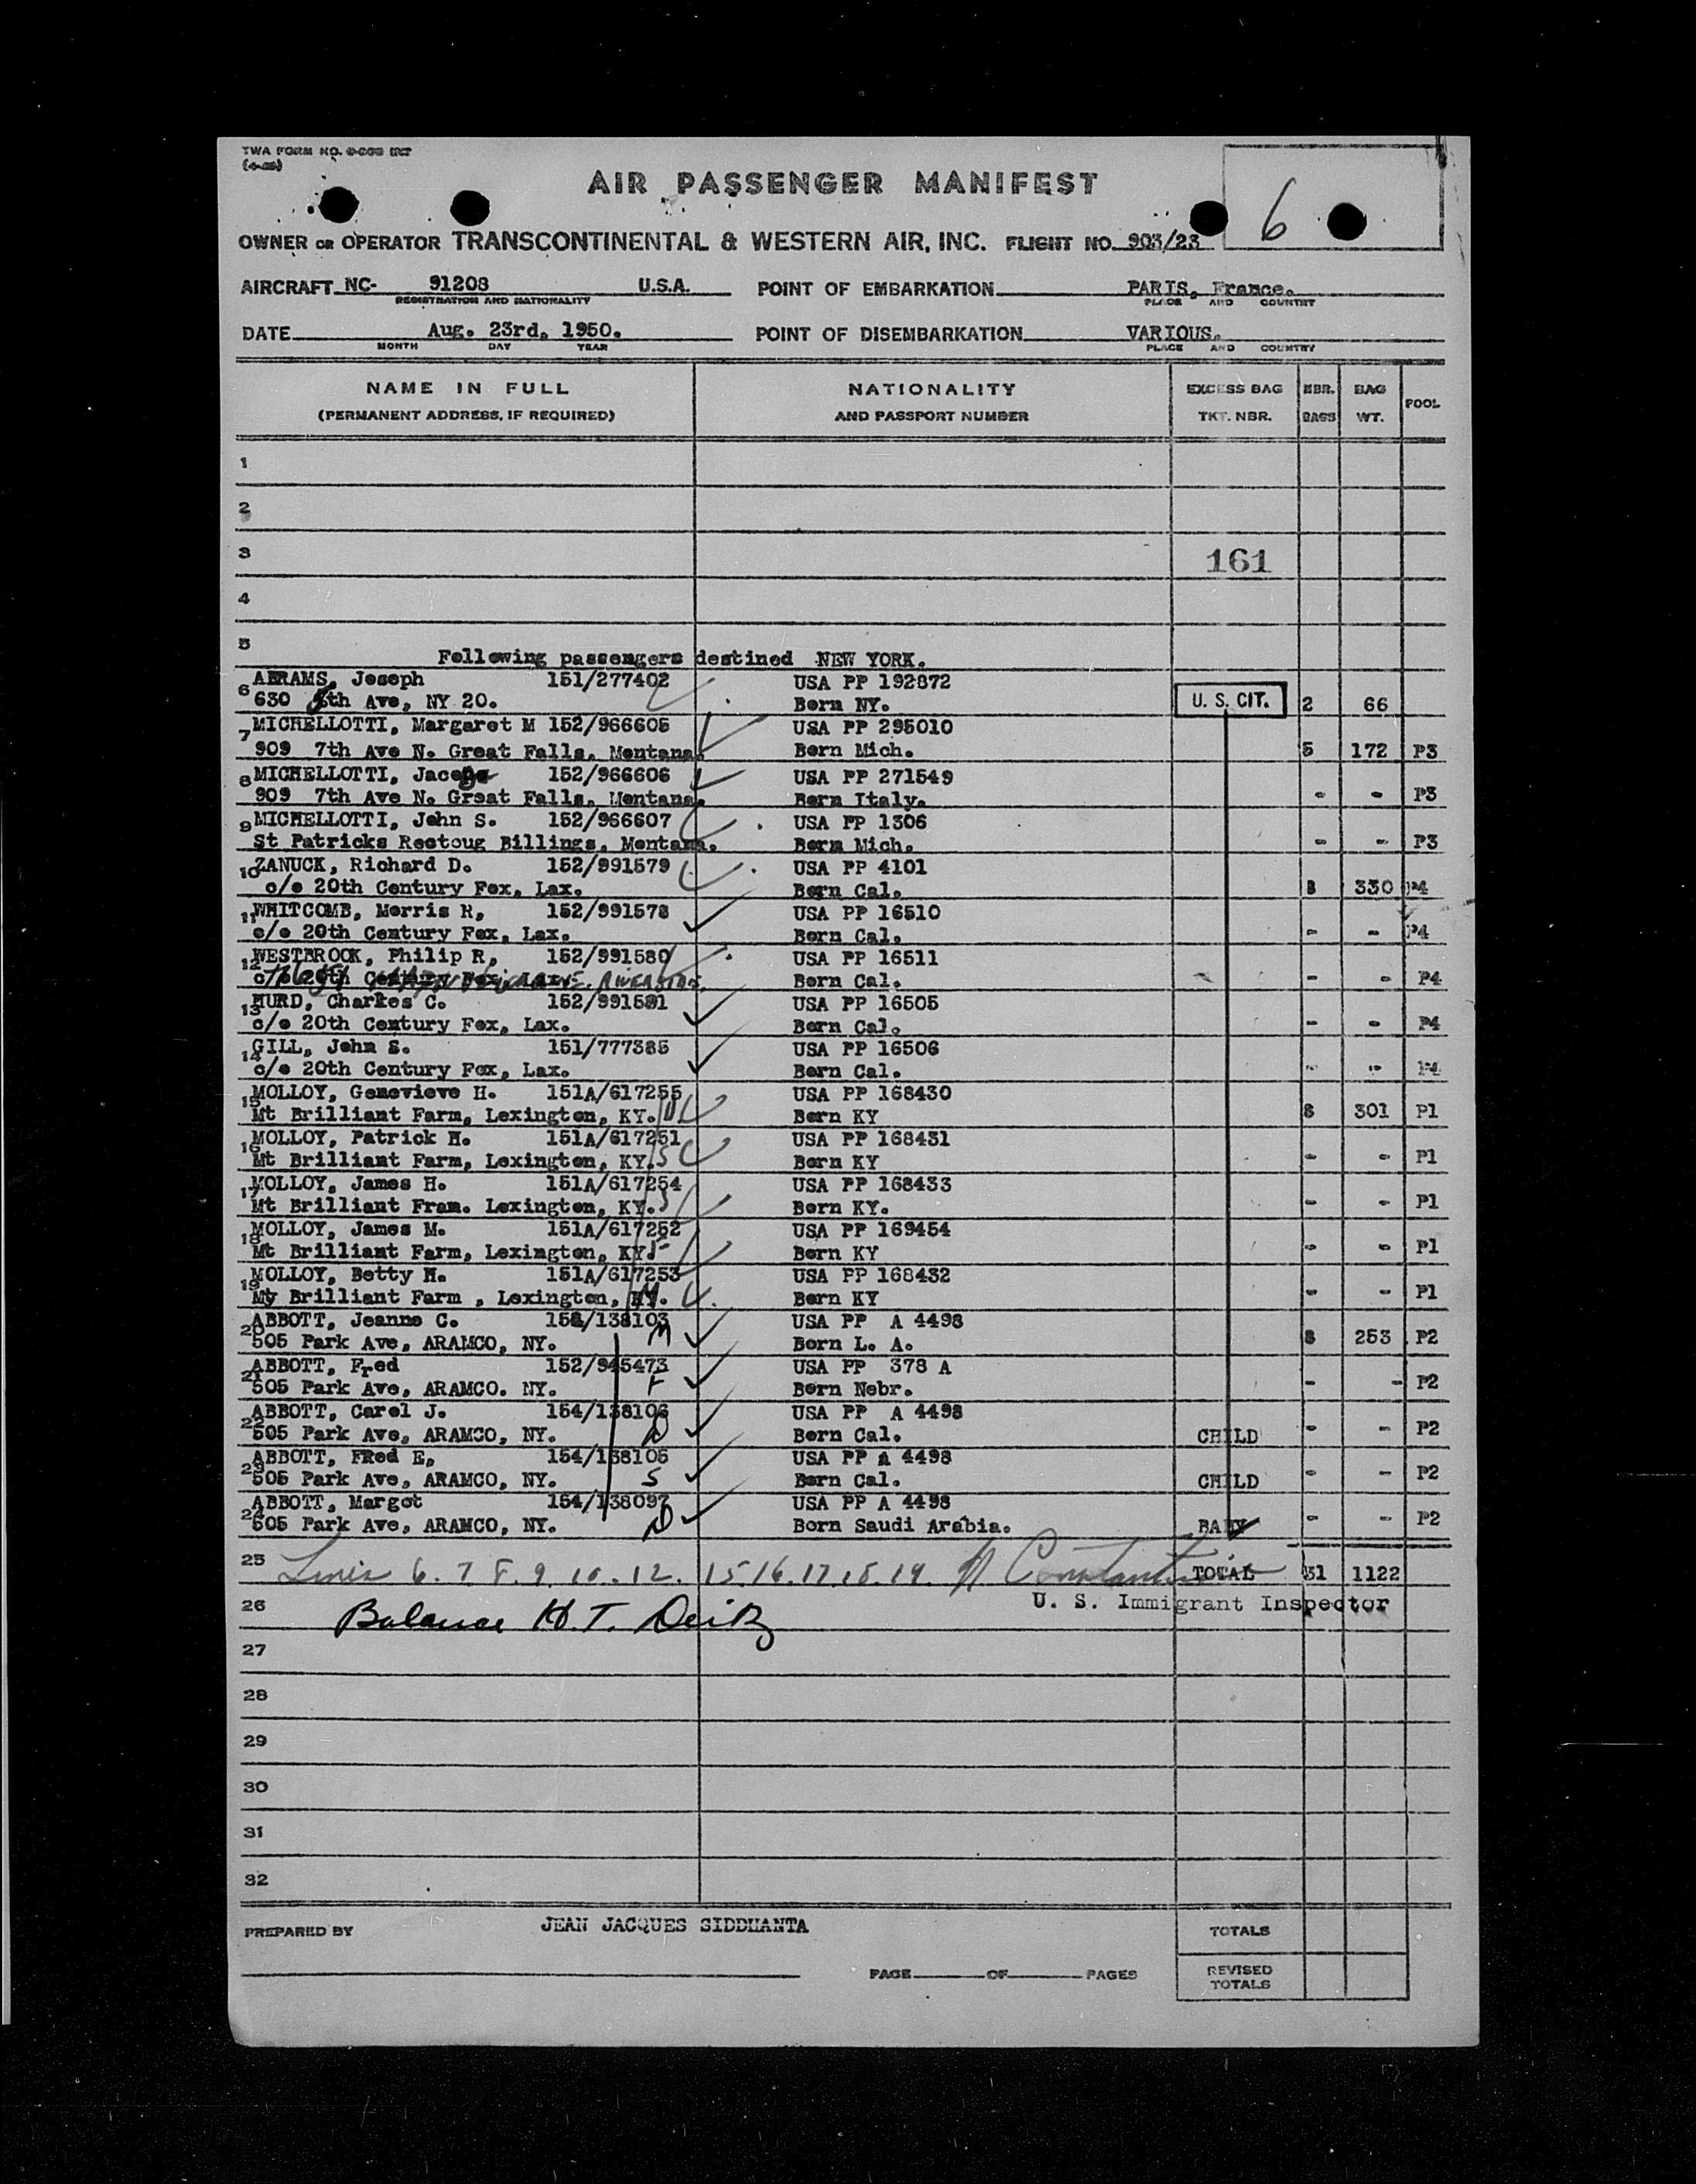 TWA FORM NO.
AIR PASSENGER MANIFEST
6
OWNER OR OPERATOR TRANSCONTINENTAL & WESTERN AIR, INC. FLIGHT NO. 903/23
AIRCRAFT NC- 91208 U.S.A. POINT OF EMBARKATION PARIS, France.
REGISTRATION AND NATIONALITY PLACE AND COUNTRY
DATE Aug. 23rd, 1950. POINT OF DISEMBARKATION VARIOUS.
MONTH DAY YEAR PLACE AND COUNTRY
NAME IN FULL NATIONALITY EXCESS BAG NBR. BAG POOL
(PERMANENT ADDRESS, IF REQUIRED) AND PASSPORT NUMBER TKT. NBR. BAGS WT.
1
2
3 161
4
5
Following passengers destined NEW YORK.
6 ABRAMS, Joseph 151/277402 USA PP 192872
630 5th Ave, NY 20. Born NY. U. S. CIT. 2 66
7 MICHELLOTTI, Margaret M 152/966605 USA PP 295010
909 7th Ave N. Great Falls, Montana. Born Mich. 5 172 P3
8 MICHELLOTTI, 152/966606 USA PP 271549
909 7th Ave N. Great Falls, Montana. Born Italy. - - P3
9 MICHELLOTTI, John S. 152/966607 USA PP 1306
St Patricks Rectoug Billings, Montana. Born Mich. - - P3
10 ZANUCK, Richard D. 152/991579 USA PP 4101
c/o 20th Century Fox, Lax. Born Cal. 8 330 P4
11 WHITCOMB, Morris R, 152/991578 USA PP 16510
c/o 20th Century Fox, Lax. Born Cal. - - P4
12 WESTBROOK, Philip R, 152/991580 USA PP 16511
c/o 20th Century Fox, Lax. Born Cal. - - P4
13 HURD, Charles C. 152/991581 USA PP 16505
c/o 20th Century Fox, Lax. Born Cal. - - P4
14 GILL, John S. 151/777385 USA PP 16506
c/o 20th Century Fox, Lax. Born Cal. - - P4
15 MOLLOY, Genevieve H. 151A/617255 USA PP 168430
Mt Brilliant Farm, Lexington, KY. Born KY 8 301 P1
16 MOLLOY, Patrick H. 151A/617251 USA PP 168431
Mt Brilliant Farm, Lexington, KY. S Born KY - - P1
17 MOLLOY, James H. 151A/617254 USA PP 168433
Mt Brilliant Fram. Lexington, KY. S Born KY. - - P1
18 MOLLOY, James M. 151A/617252 USA PP 169454
Mt Brilliant Farm, Lexington, KY. F Born KY - - P1
19 MOLLOY, Betty H. 151A/617253 USA PP 168432
My Brilliant Farm , Lexington, KY. M Born KY - - P1
20 ABBOTT, Jeanne C. 152/138103 USA PP A 4498
505 Park Ave, ARAMCO, NY. M Born L. A. 8 253 P2
21 ABBOTT, Fred 152/945473 USA PP 378 A
505 Park Ave, ARAMCO. NY. F Born Nebr. - - P2
22 ABBOTT, Carol J. 154/138106 USA PP A 4498
505 Park Ave, ARAMCO, NY. D Born Cal. CHILD - - P2
23 ABBOTT, FRed E, 154/138105 USA PP A 4498
505 Park Ave, ARAMCO, NY. S Born Cal. CHILD - - P2
24 ABBOTT, Margot 154/138097 USA PP A 4498
505 Park Ave, ARAMCO, NY. D Born Saudi Arabia. BABY - - P2
25 Lines 6. 7 8. 9. 10. 12. 15. 16. 17. 18. 19. TOTAL 31 1122
26 Balance H. T. U. S. Immigrant Inspector
27
28
29
30
31
32
PREPARED BY JEAN JACQUES SIDDHANTA TOTALS
PAGE OF PAGES REVISED TOTALS